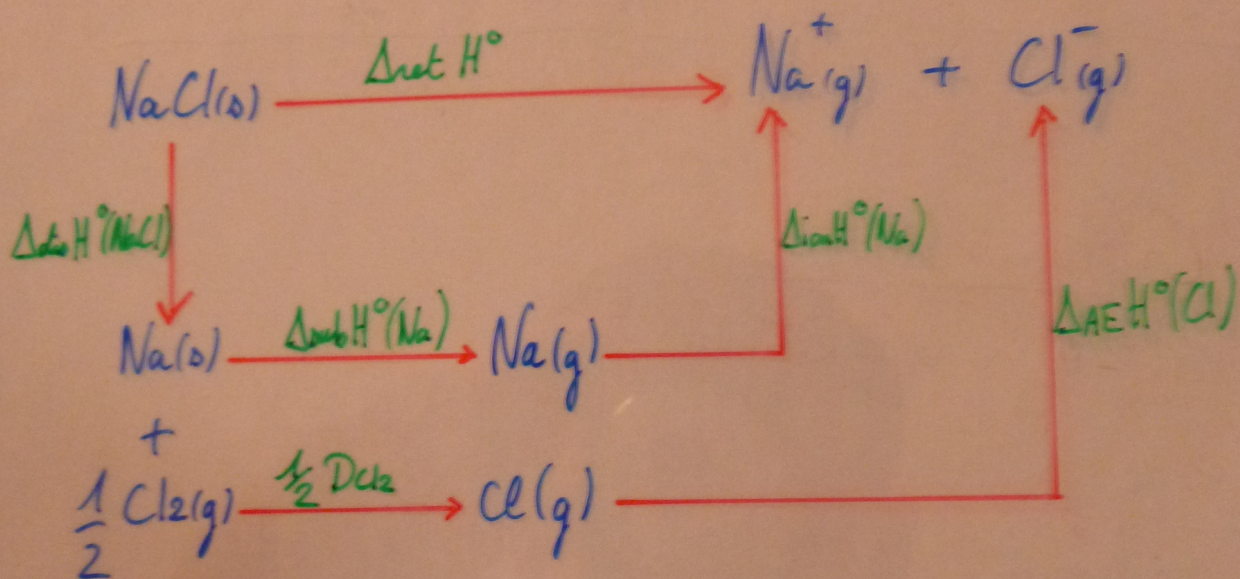 ΔretH° Na⁺(g) + Cl⁻(g)
NaCl(s)
ΔdissH°(NaCl) ΔionH°(Na)
ΔAEH°(Cl)
Na(s) ΔsubH°(Na) Na(g)
+
½ Cl₂(g) ½ DCl₂ Cl(g)